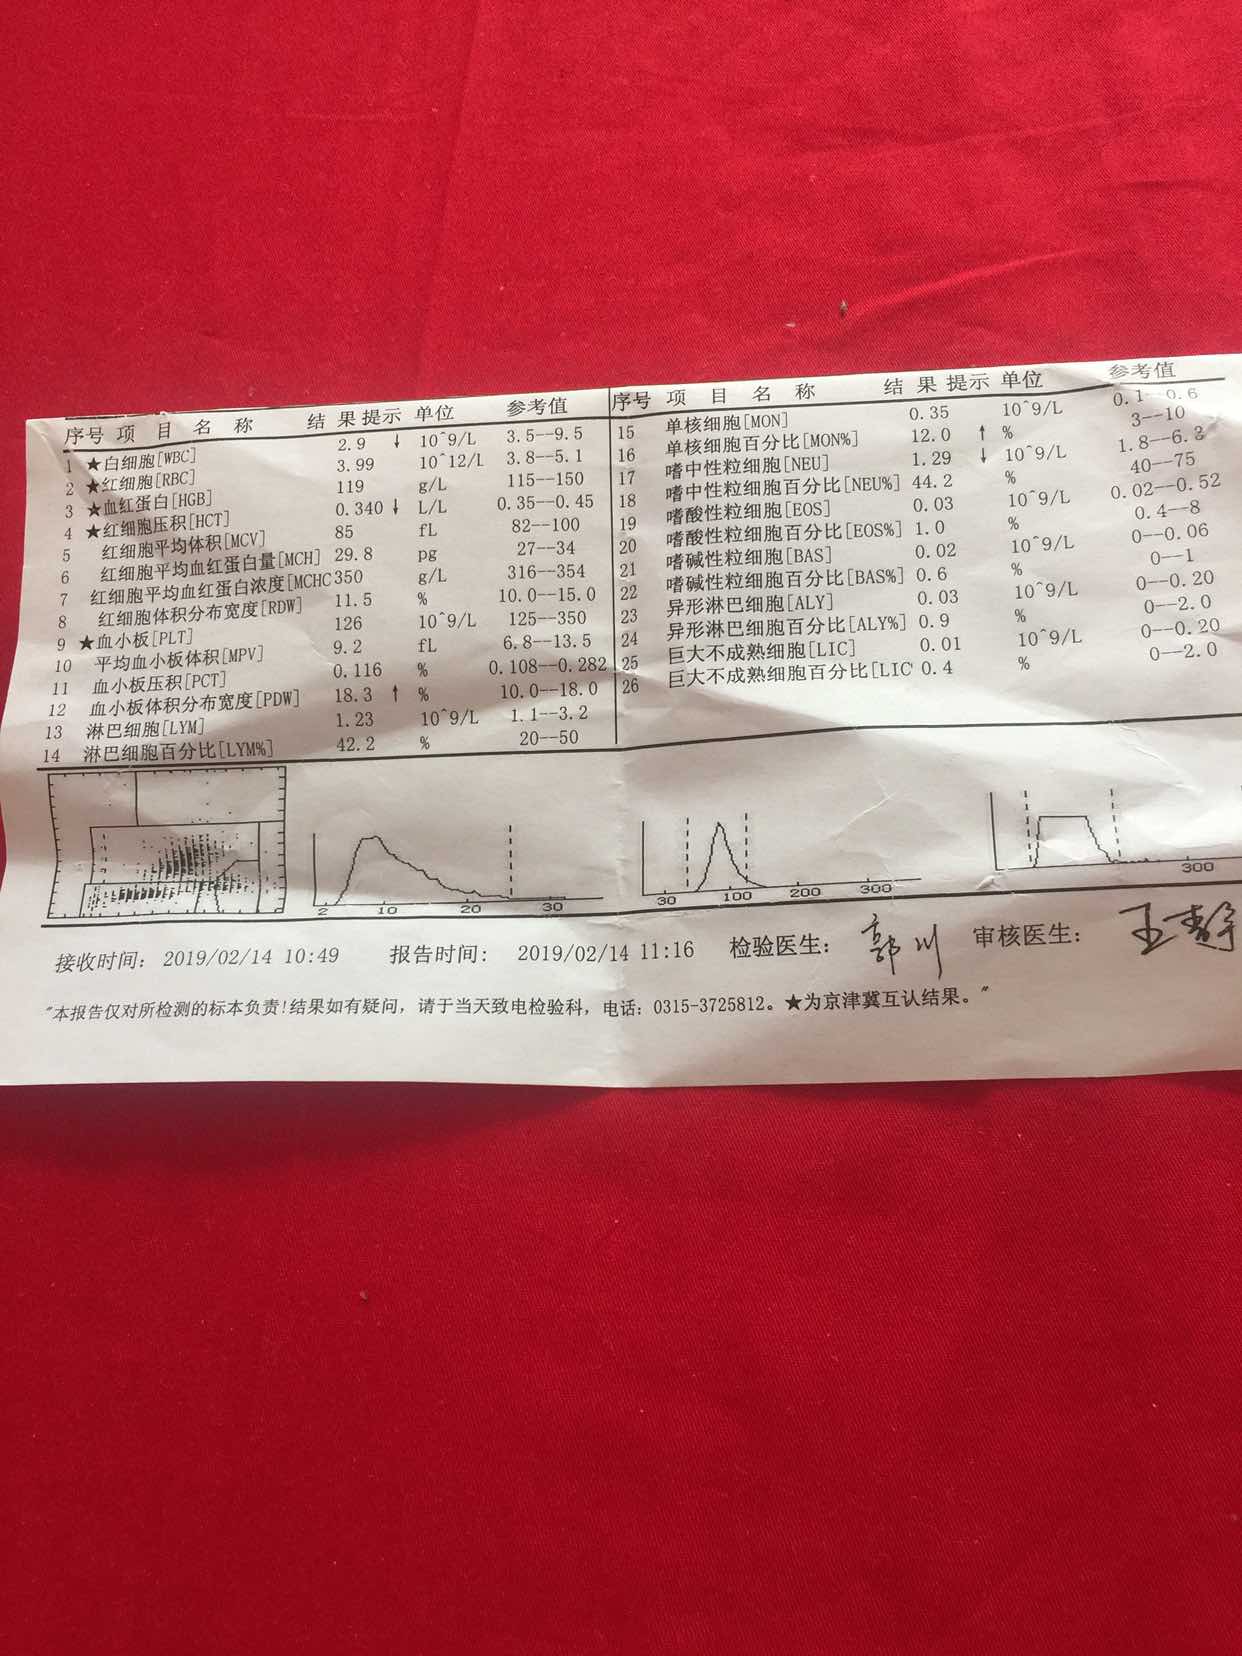 序号 项 目 名 称 结 果 提示 单位 参考值
1 ★白细胞[WBC] 2.9 ↓ 10^9/L 3.5--9.5
2 ★红细胞[RBC] 3.99 10^12/L 3.8--5.1
3 ★血红蛋白[HGB] 119 g/L 115--150
4 ★红细胞压积[HCT] 0.340 ↓ L/L 0.35--0.45
5 红细胞平均体积[MCV] 85 fL 82--100
6 红细胞平均血红蛋白量[MCH] 29.8 pg 27--34
7 红细胞平均血红蛋白浓度[MCHC 350 g/L 316--354
8 红细胞体积分布宽度[RDW] 11.5 % 10.0--15.0
9 ★血小板[PLT] 126 10^9/L 125--350
10 平均血小板体积[MPV] 9.2 fL 6.8--13.5
11 血小板压积[PCT] 0.116 % 0.108--0.282
12 血小板体积分布宽度[PDW] 18.3 ↑ % 10.0--18.0
13 淋巴细胞[LYM] 1.23 10^9/L 1.1--3.2
14 淋巴细胞百分比[LYM%] 42.2 % 20--50
序号 项 目 名 称 结 果 提示 单位 参考值
15 单核细胞[MON] 0.35 10^9/L 0.1--0.6
16 单核细胞百分比[MON%] 12.0 ↑ % 3--10
17 嗜中性粒细胞[NEU] 1.29 ↓ 10^9/L 1.8--6.3
18 嗜中性粒细胞百分比[NEU%] 44.2 % 40--75
19 嗜酸性粒细胞[EOS] 0.03 10^9/L 0.02--0.52
20 嗜酸性粒细胞百分比[EOS%] 1.0 % 0.4--8
21 嗜碱性粒细胞[BAS] 0.02 10^9/L 0--0.06
22 嗜碱性粒细胞百分比[BAS%] 0.6 % 0--1
23 异形淋巴细胞[ALY] 0.03 10^9/L 0--0.20
24 异形淋巴细胞百分比[ALY%] 0.9 % 0--2.0
25 巨大不成熟细胞[LIC] 0.01 10^9/L 0--0.20
26 巨大不成熟细胞百分比[LIC 0.4 % 0--2.0
2 10 20 30
30 100 200 300
300
接收时间: 2019/02/14 10:49 报告时间: 2019/02/14 11:16 检验医生: 郭川 审核医生: 王静
"本报告仅对所检测的标本负责!结果如有疑问，请于当天致电检验科，电话: 0315-3725812。★为京津冀互认结果。"